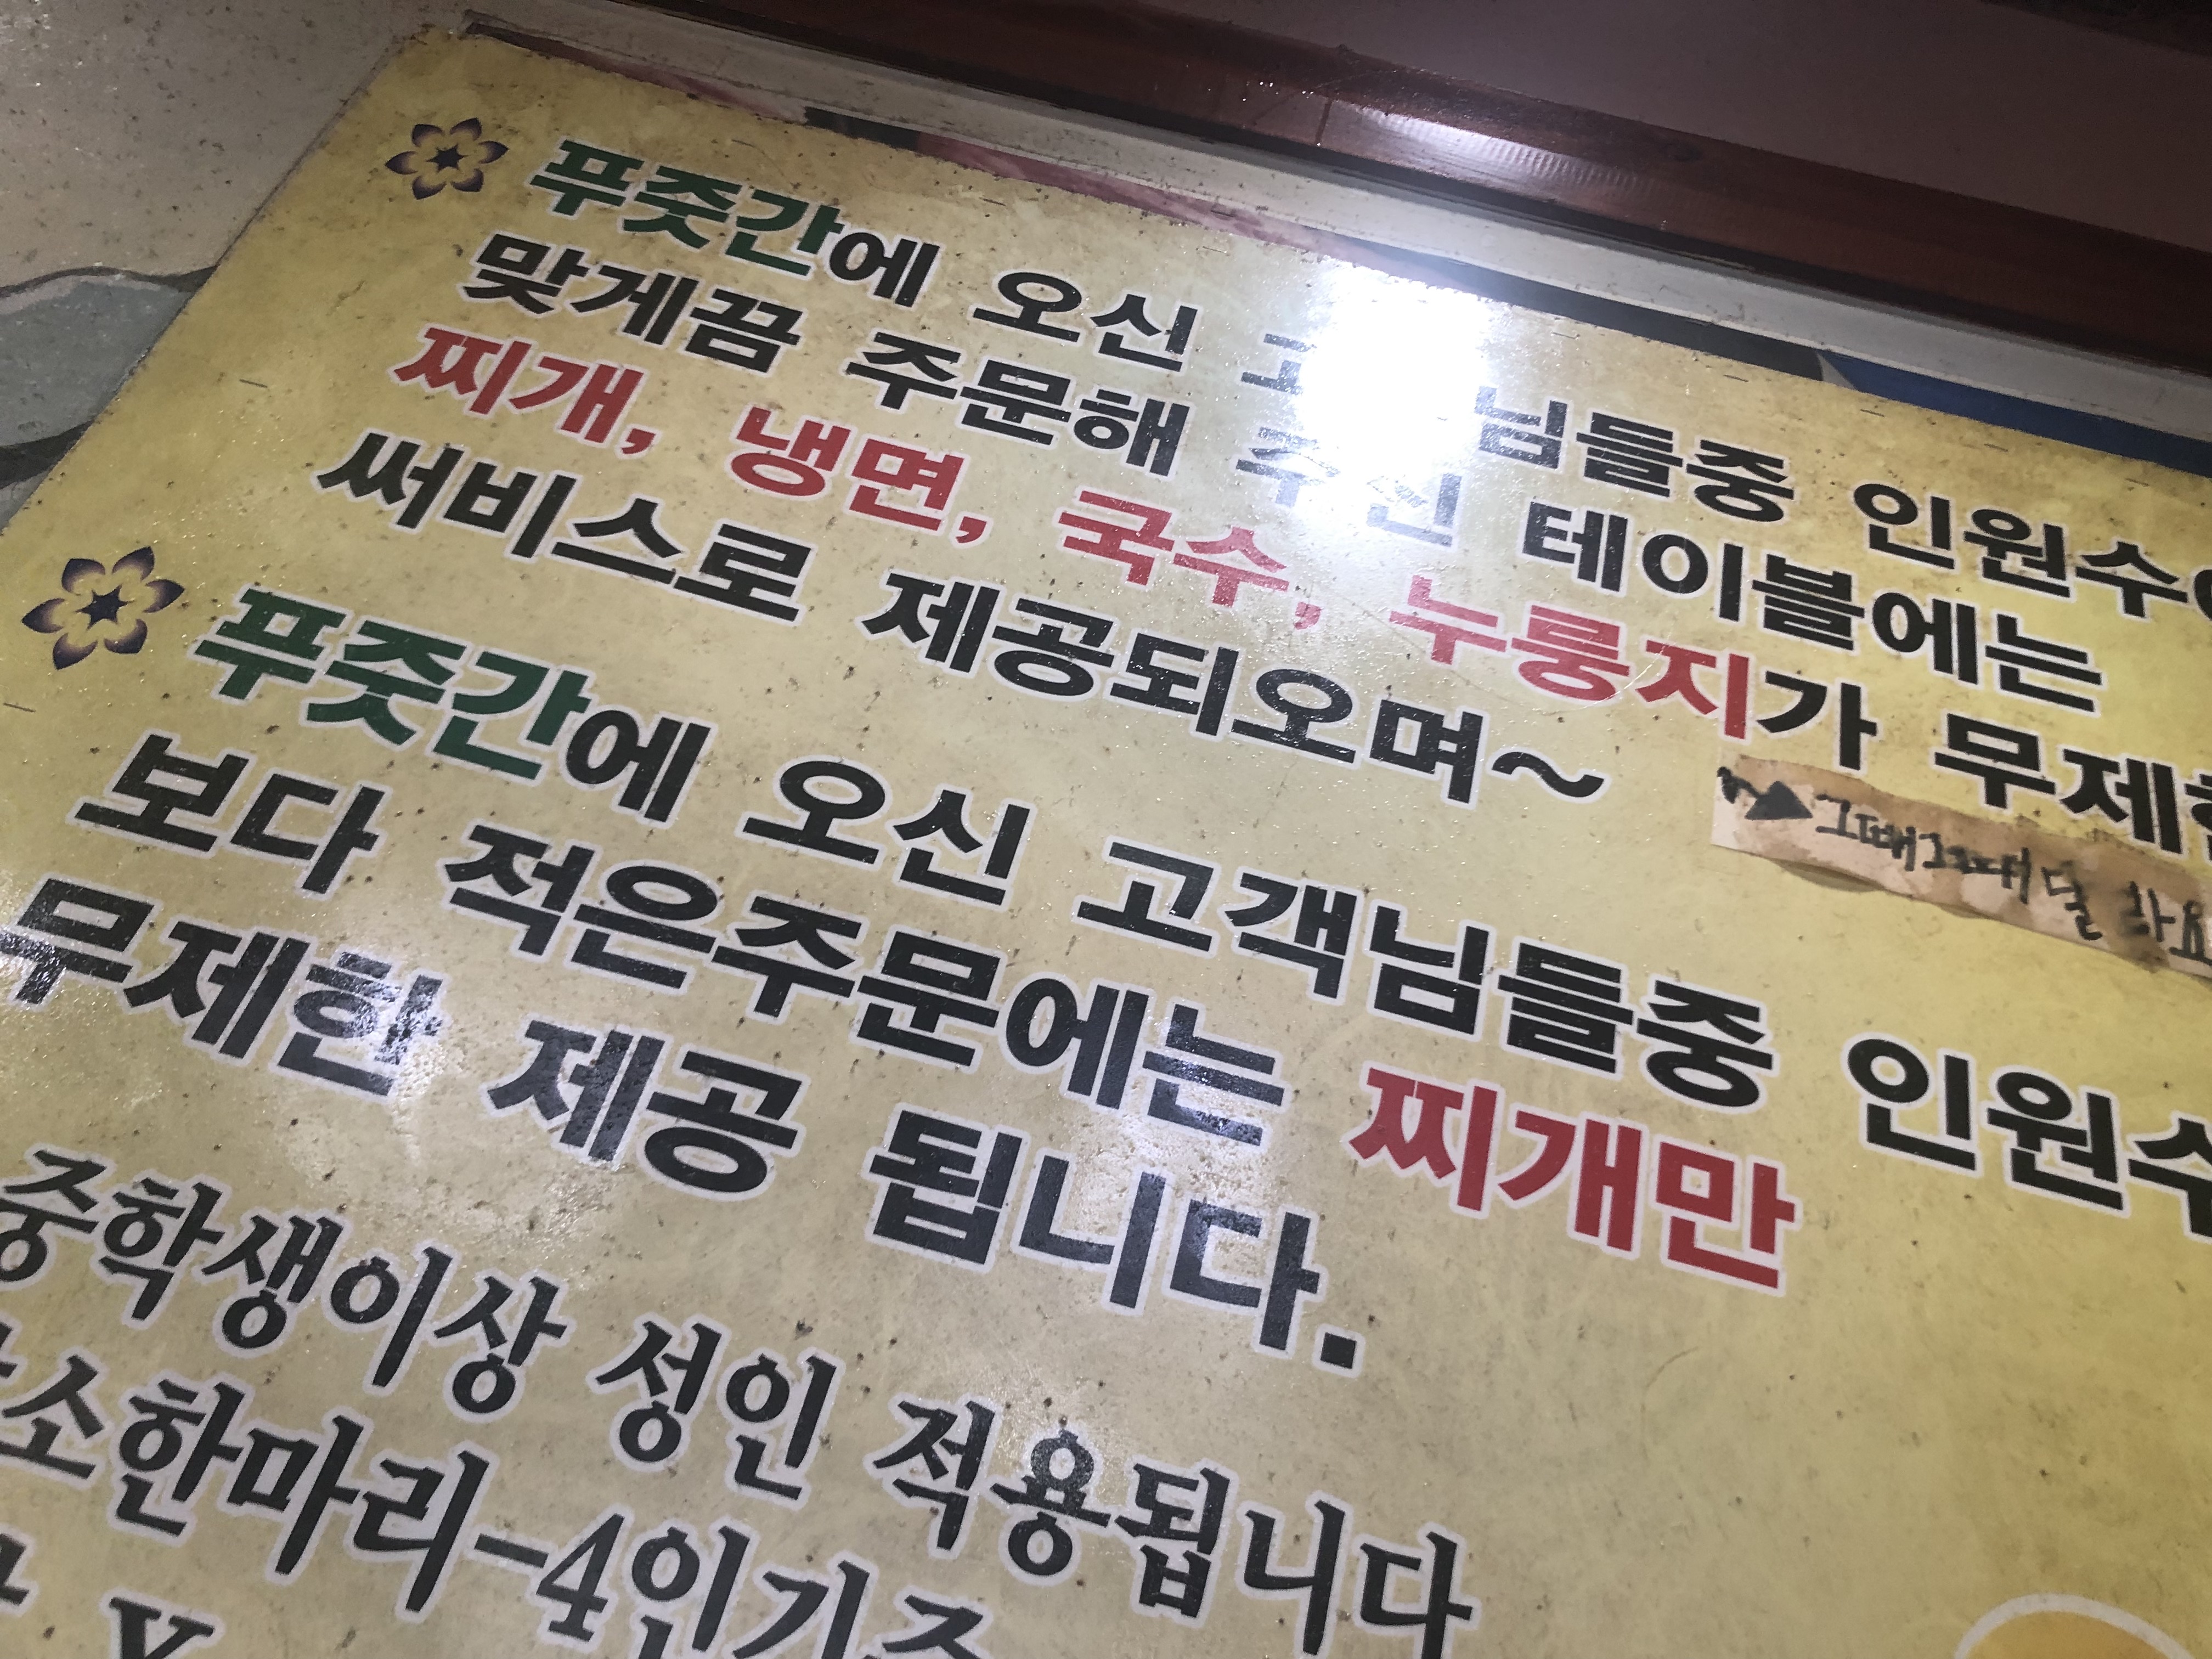 푸줏간에 오신 님들중 인원수
맞게끔 주문해 주신 테이블에는
찌개, 냉면, 국수, 누룽지가 무제한
써비스로 제공되오며~
그때그때 달라요
푸줏간에 오신 고객님들중 인원수
보다 적은주문에는 찌개만
무제한 제공 됩니다.
중학생이상 성인 적용됩니다
소한마리-4인기준